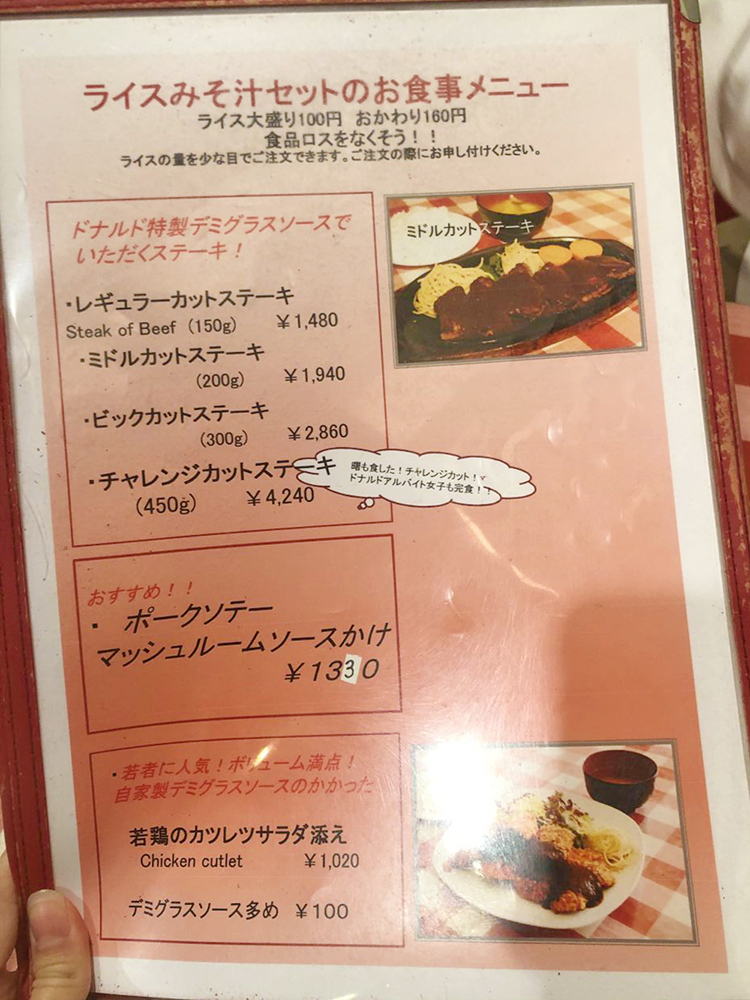 ライスみそ汁セットのお食事メニュー
ライス大盛り100円 おかわり160円
食品ロスをなくそう！！
ライスの量を少な目でご注文できます。ご注文の際にお申し付けください。
ドナルド特製デミグラスソースで
いただくステーキ！
・レギュラーカットステーキ
Steak of Beef (150g) ￥1,480
・ミドルカットステーキ
(200g) ￥1,940
・ビックカットステーキ
(300g) ￥2,860
・チャレンジカットステーキ
(450g) ￥4,240
ミドルカットステーキ
曙も食した！チャレンジカット！
ドナルドアルバイト女子も完食！！
おすすめ！！
・ ポークソテー
マッシュルームソースかけ
￥1330
・若者に人気！ボリューム満点！
自家製デミグラスソースのかかった
若鶏のカツレツサラダ添え
Chicken cutlet ￥1,020
デミグラスソース多め ￥100